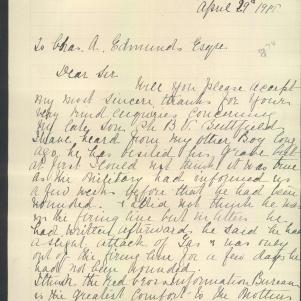 April 29th 1918
To Chas. A. Edmunds Esqre
Dear Sir
Will you please accept
my most sincere thanks for yours
very kind enquiries concerning
my late Son Pte B. V. Buttfield
I have heard from my other Boy long
ago, he has visited his grave but
at first I could not think it was true
as the Military had informed us
a few weeks before that he had been
wounded. & I did not think he was
in the firing line but in letters he
had written afterwards he said he had
a slight attack of Gas & was only
out of the firing line for a few days he
had not been wounded.
I think the Red Cross Information Bureau
is the Greatest Comfort to the Mothers